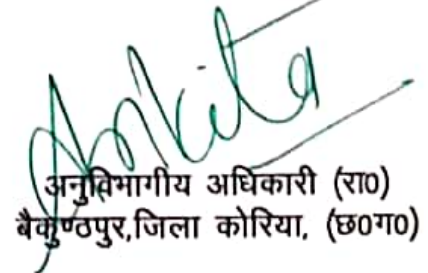 Ankita
अनुविभागीय अधिकारी (रा0)
बैकुण्ठपुर,जिला कोरिया, (छ0ग0)